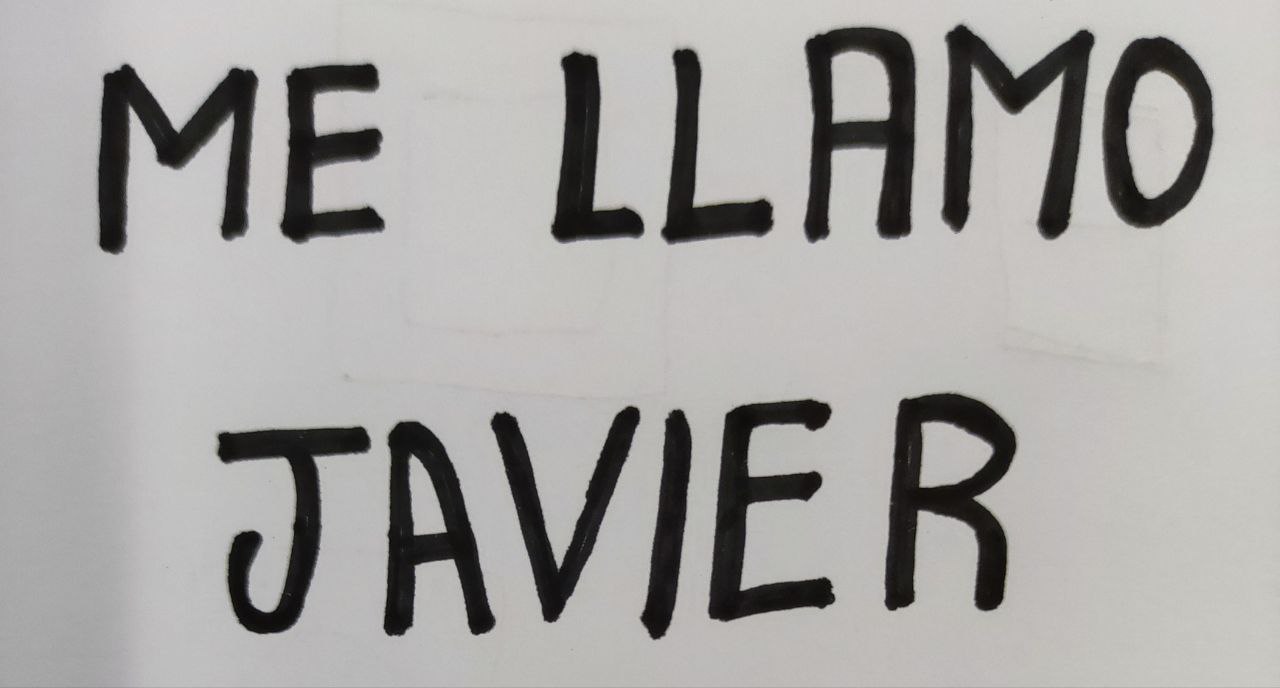 ME LLAMO
JAVIER